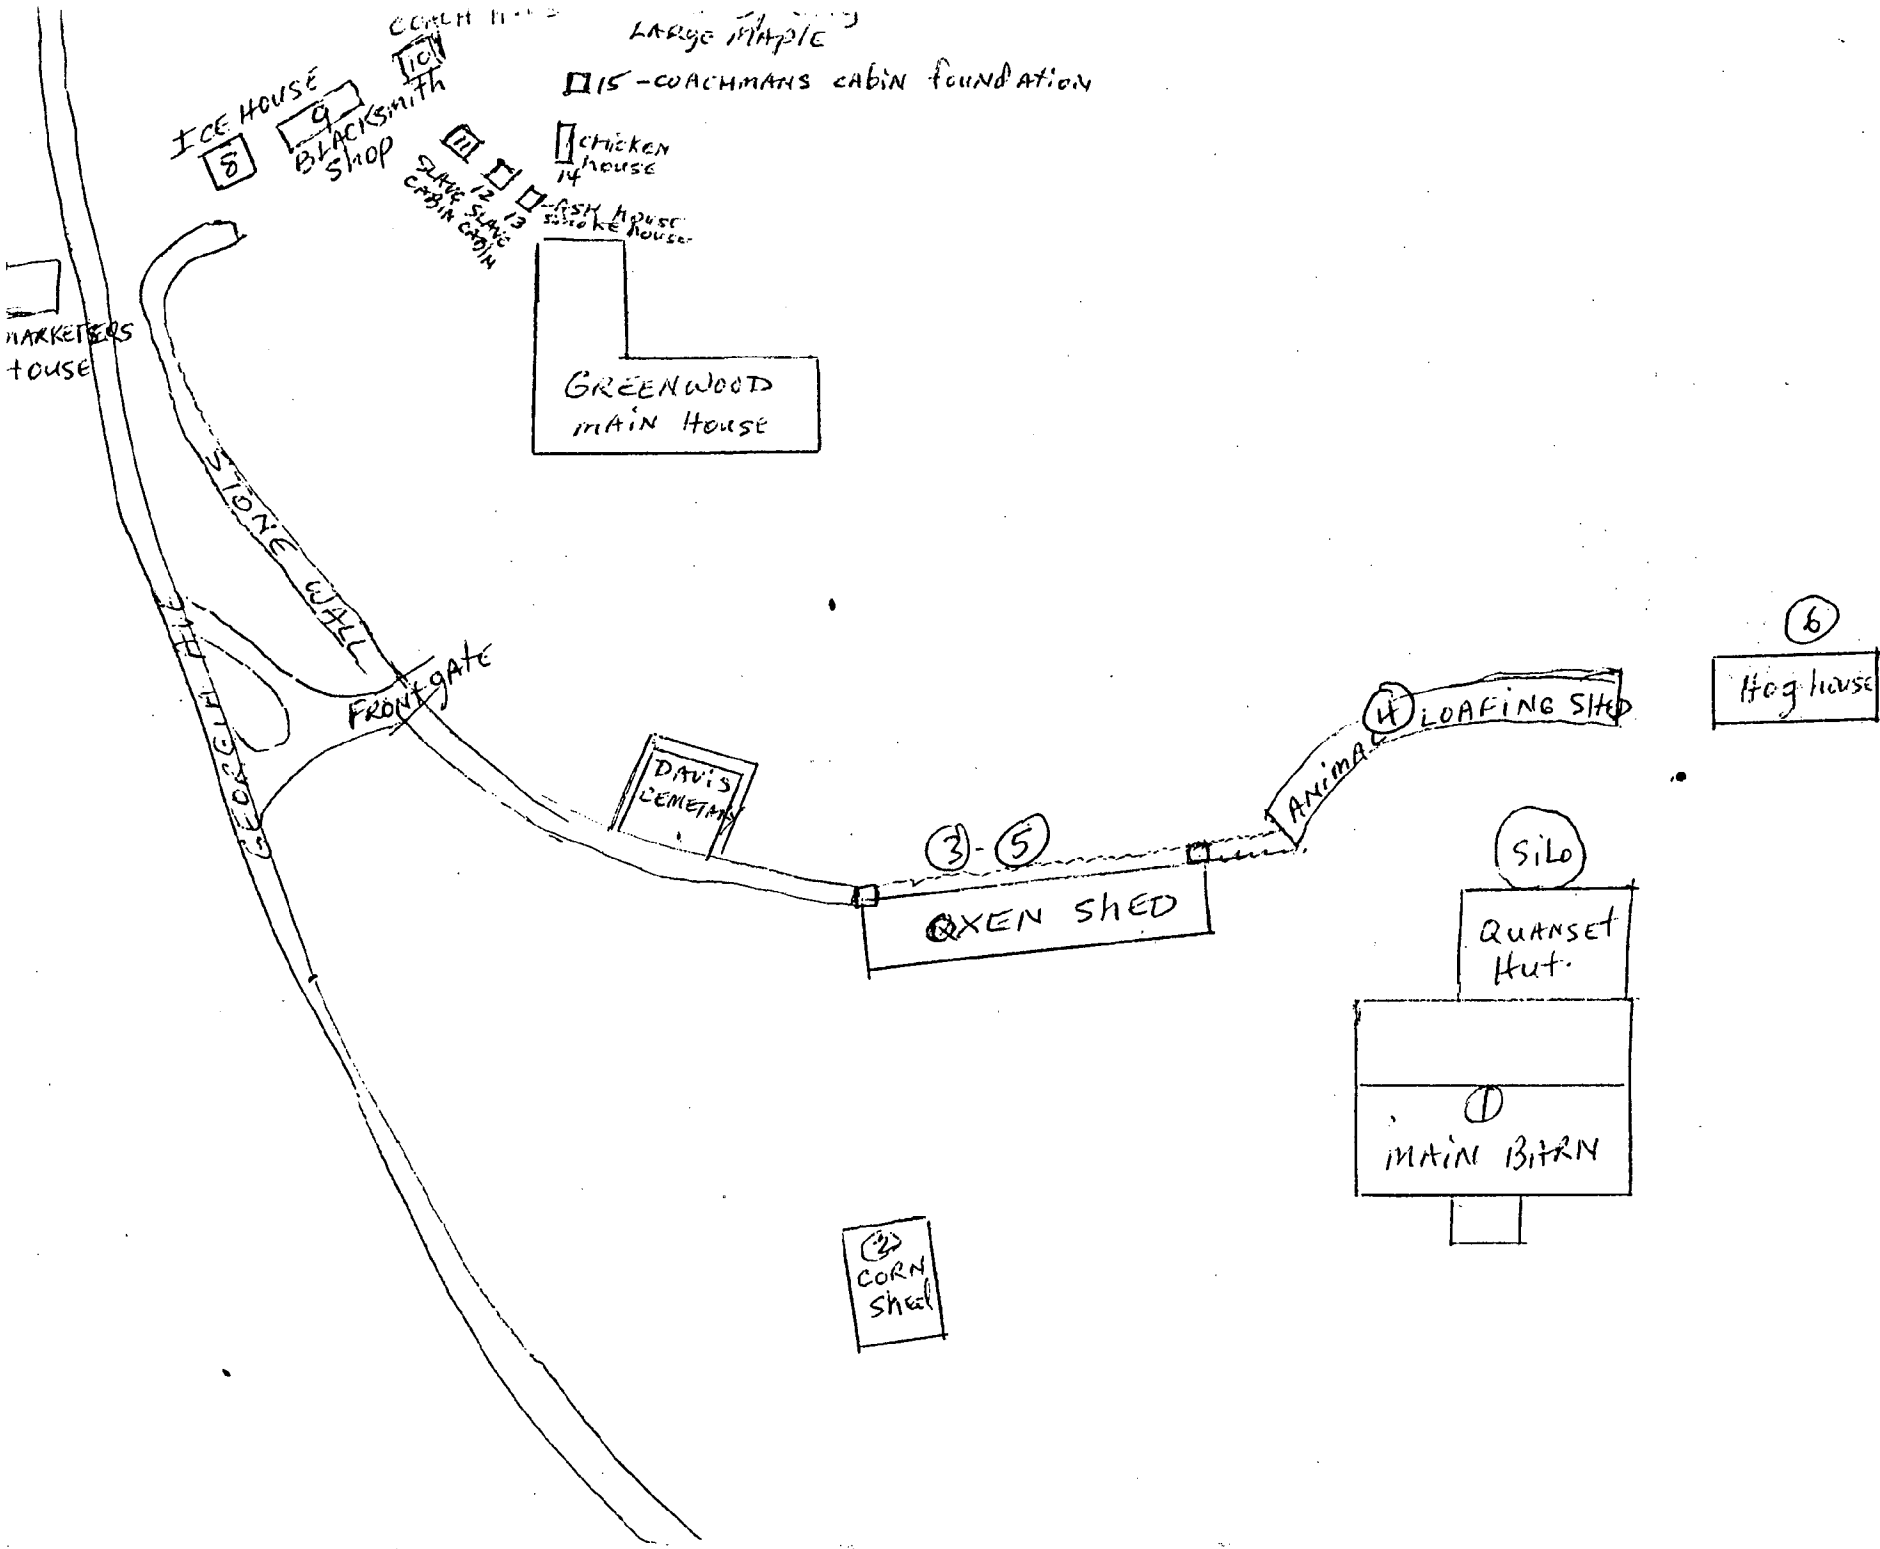 COACH
LARGE MAPLE
10
15 - COACHMANS CABIN FOUNDATION
ICE HOUSE
8
9
BLACKSMITH
SHOP
11
SLAVE
CABIN
12
SLAVE
CABIN
13
ASH HOUSE
SMOKE HOUSE
CHICKEN
HOUSE
14
MARKETERS
HOUSE
GREENWOOD
MAIN HOUSE
STONE WALL
FRONT gATE
DAVIS
CEMETARY
3 - 5
OXEN SHED
ANIMAL
4 LOAFING SHED
6
Hog house
SiLo
QUANSET
Hut.
1
MAIN BARN
2
CORN
Shed